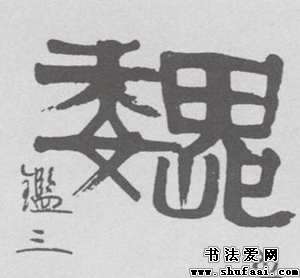 魏
鑑三
书法爱网
www.shufaai.com